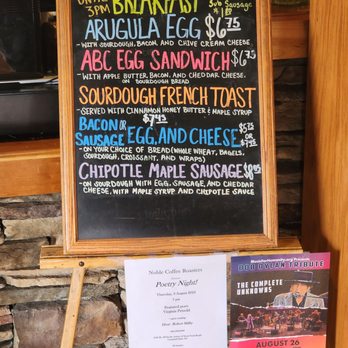 UNTIL BREAKFAST Sub Sausage
3PM
ARUGULA EGG $6.75
- WITH SOURDOUGH, BACON, AND CHIVE CREAM CHEESE
ABC EGG SANDWICH $6.75
- WITH APPLE BUTTER, BACON, AND CHEDDAR CHEESE.
ON SOURDOUGH BREAD
SOURDOUGH FRENCH TOAST
- SERVED WITH CINNAMON HONEY BUTTER & MAPLE SYRUP
$7.95
BACON OR
SAUSAGE EGG, AND CHEESE
- ON YOUR CHOICE OF BREAD (WHOLE WHEAT, BAGELS,
SOURDOUGH, CROISSANT, AND WRAPS)
CHIPOTLE MAPLE SAUSAGE
- ON SOURDOUGH WITH EGG, SAUSAGE, AND CHEDDAR
CHEESE, WITH MAPLE SYRUP AND CHIPOTLE SAUCE
Noble Coffee Roasters
Poetry Night!
BOB DYLAN TRIBUTE
THE COMPLETE
UNKNOWNS
AUGUST 26